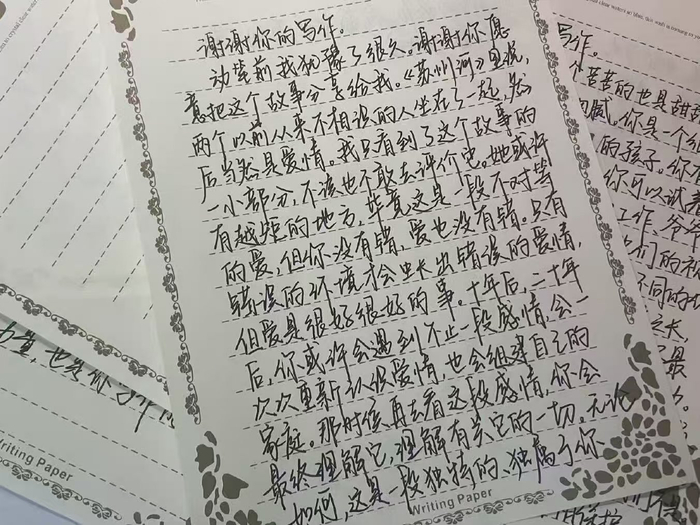 谢谢你的写作。
动笔前我犹豫了很久。谢谢你愿
意把这个故事分享给我。《苏州河》里说,
两个以前从来不相识的人坐在了一起,然
后当然是爱情。我只看到了这个故事的
一小部分,不该也不敢去评价它。她或许
有越矩的地方,毕竟这是一段不对等
的爱,但你没有错,爱也没有错。只有
错误的环境才会生长出错误的爱情,
但爱是很好很好的事。十年后,二十年
后,你或许会遇到不止一段感情,会一
次次重新认识爱情,也会组建自己的
家庭。那时候再去看这段感情,你会
最终理解它,理解有关它的一切。无论
如何,这是一段独特的、独属于你
Writing Paper
写作。
个苦苦的也是甜
你是一个
的孩子,你
你可以试着
工作。爷爷
们的
不同的
之长,
最
Writing Paper